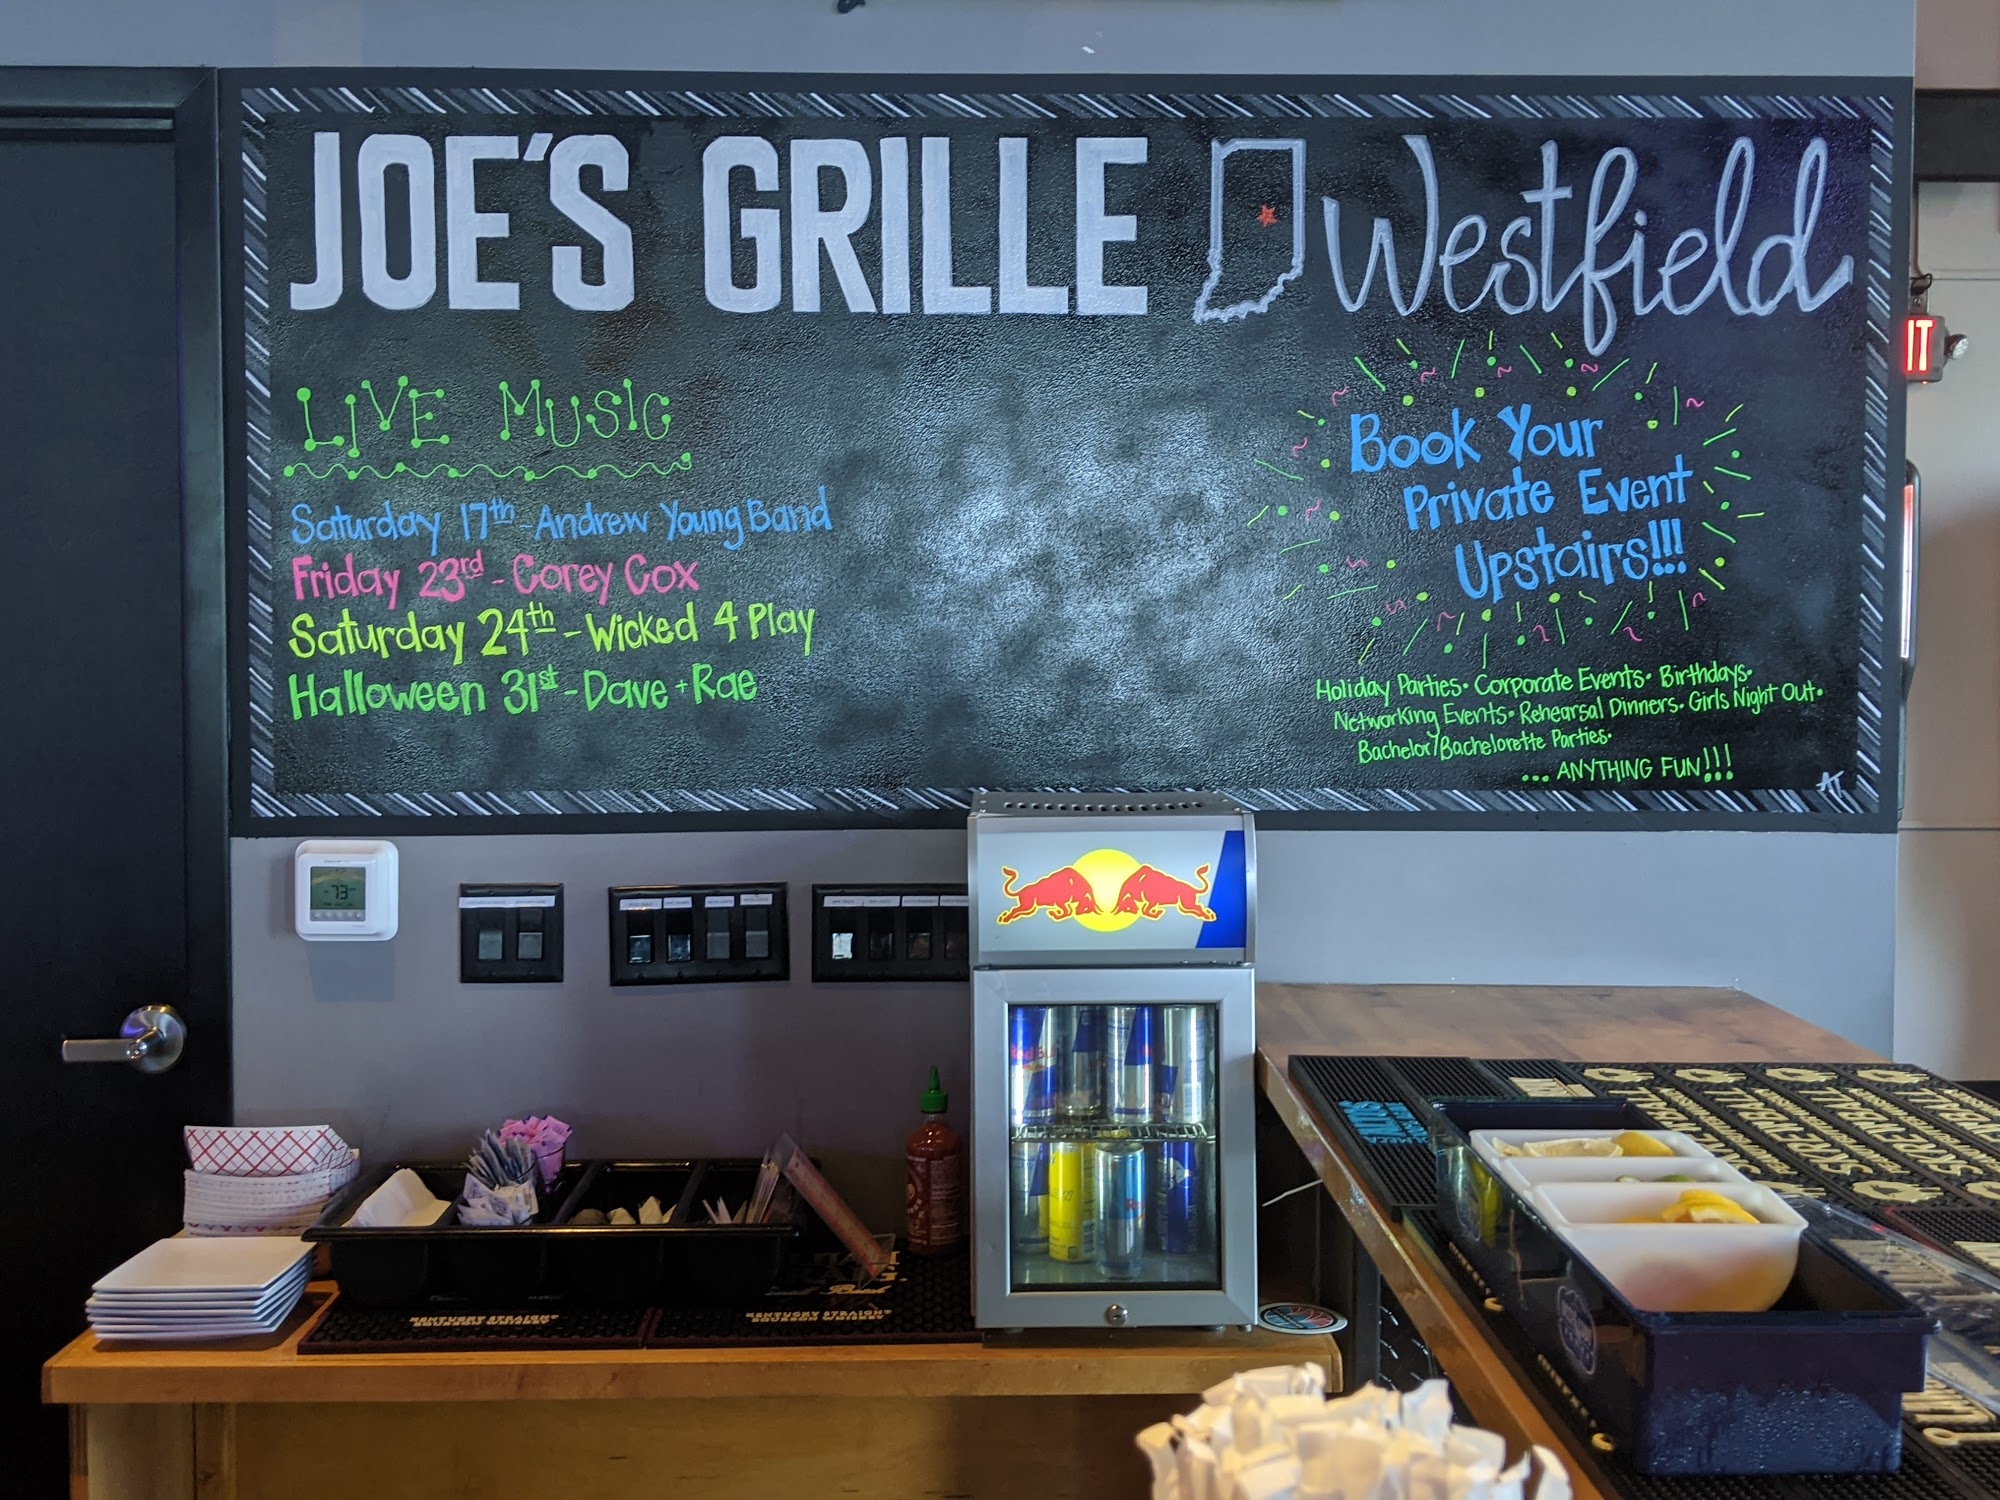 JOE'S GRILLE Westfield
LIVE MUSIC
Saturday 17th - Andrew Young Band
Friday 23rd - Corey Cox
Saturday 24th - Wicked 4 Play
Halloween 31st - Dave + Rae
Book Your
Private Event
Upstairs!!!
Holiday Parties • Corporate Events • Birthdays •
Networking Events • Rehearsal Dinners • Girls Night Out •
Bachelor/Bachelorette Parties •
... ANYTHING FUN!!!
AT
IT
73
KENTUCKY STRAIGHT
BOURBON WHISKEY
KENTUCKY STRAIGHT
BOURBON WHISKEY